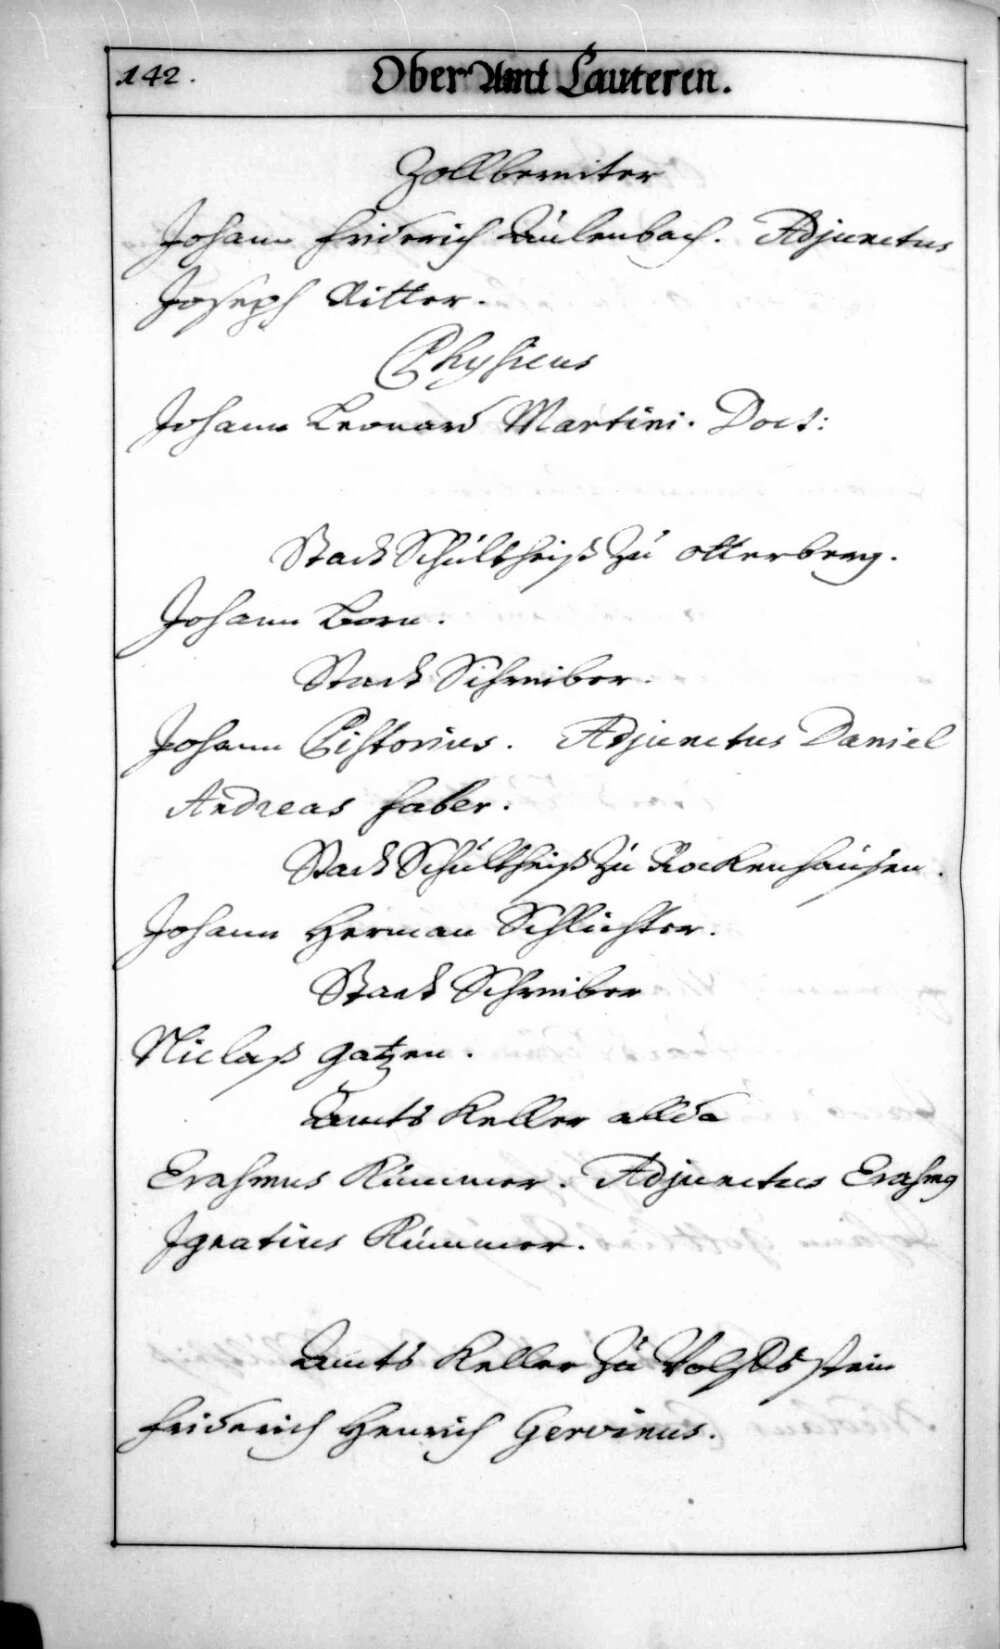 142. Ober Amt Lauteren.
Zollbereiter
Johann Friderich Aulenbach. Adjunctus
Joseph Ritter.
Physicus
Johann Leonard Martini. Doct:
Statt Schultheiß zu Otterberg.
Johann Born.
Statt Schreiber.
Johann Pistorius. Adjunctus Daniel
Andreas Faber.
Statt Schultheiß zu Rockenhausen.
Johann Herman Schlichter.
Statt Schreiber
Niclaß Gatzen.
Amts Keller allda
Erasmus Kümmer. Adjunctus Erasmg
Ignatius Kümmer.
Amts Keller zu Wolffstein
Friderich Henrich Gervinus.